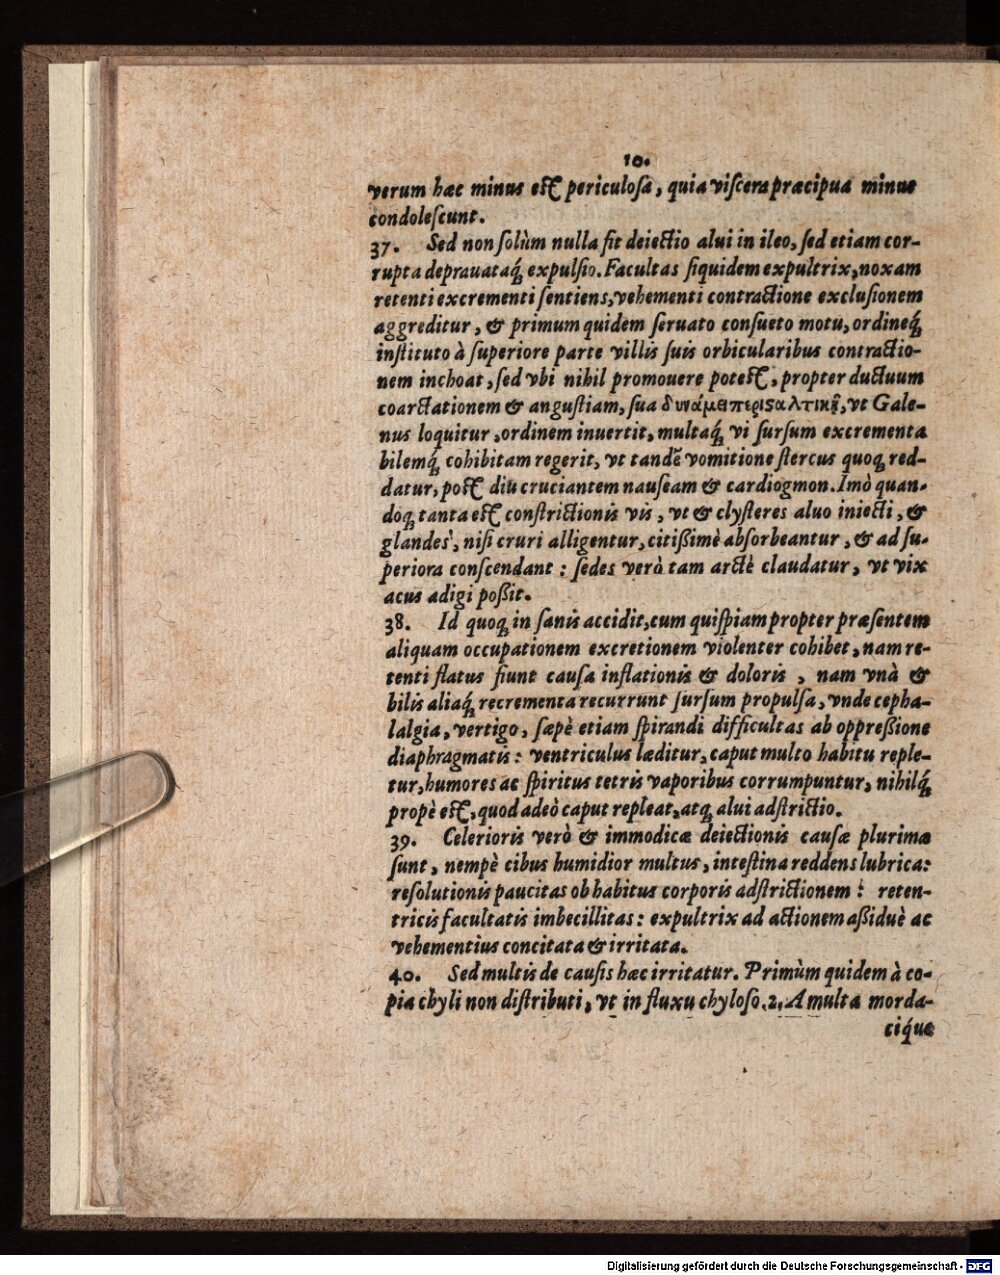 10.
verum hæc minus est periculosa, quia viscera præcipua minus
condolescunt.
37. Sed non solùm nulla fit deiectio alui in ileo, sed etiam cor-
rupta deprauataq́, expulsio. Facultas siquidem expultrix, noxam
retenti excrementi sentiens, vehementi contractione exclusionem
aggreditur, & primum quidem seruato consueto motu, ordineq́,
instituto à superiore parte villis suis orbicularibus contractio-
nem inchoat, sed vbi nihil promouere potest, propter ductuum
coarctationem & angustiam, sua δυνάμει περιϛαλτικῇ, vt Gale-
nus loquitur, ordinem inuertit, multaq́, vi sursum excrementa
bilemq́, cohibitam regerit, vt tandẽ vomitione stercus quoq, red-
datur, post diu cruciantem nauseam & cardiogmon. Imò quan-
doq, tanta est constrictionis vis, vt & clysteres aluo iniecti, &
glandes, nisi cruri alligentur, citißimè absorbeantur, & ad su-
periora conscendant: sedes verò tam arctè claudatur, vt vix
acus adigi poßit.
38. Id quoq, in sanis accidit, cum quispiam propter præsentem
aliquam occupationem excretionem violenter cohibet, nam re-
tenti flatus fiunt causa inflationis & doloris, nam vnà &
bilis aliaq́, recrementa recurrunt sursum propulsa, vnde cepha-
lalgia, vertigo, sæpè etiam spirandi difficultas ab oppreßione
diaphragmatis: ventriculus læditur, caput multo habitu reple-
tur, humores ac spiritus tetris vaporibus corrumpuntur, nihilq́,
propè est, quod adeò caput repleat, atq, alui adstrictio.
39. Celerioris verò & immodicæ deiectionis causæ plurimæ
sunt, nempè cibus humidior multus, intestina reddens lubrica:
resolutionis paucitas ob habitus corporis adstrictionem: reten-
tricis facultatis imbecillitas: expultrix ad actionem aßiduè ac
vehementius concitata & irritata.
40. Sed multis de causis hæc irritatur. Primùm quidem à co-
pia chyli non distributi, vt in fluxu chyloso. 2. A multa morda-
ciq́ue
Digitalisierung gefördert durch die Deutsche Forschungsgemeinschaft - DFG